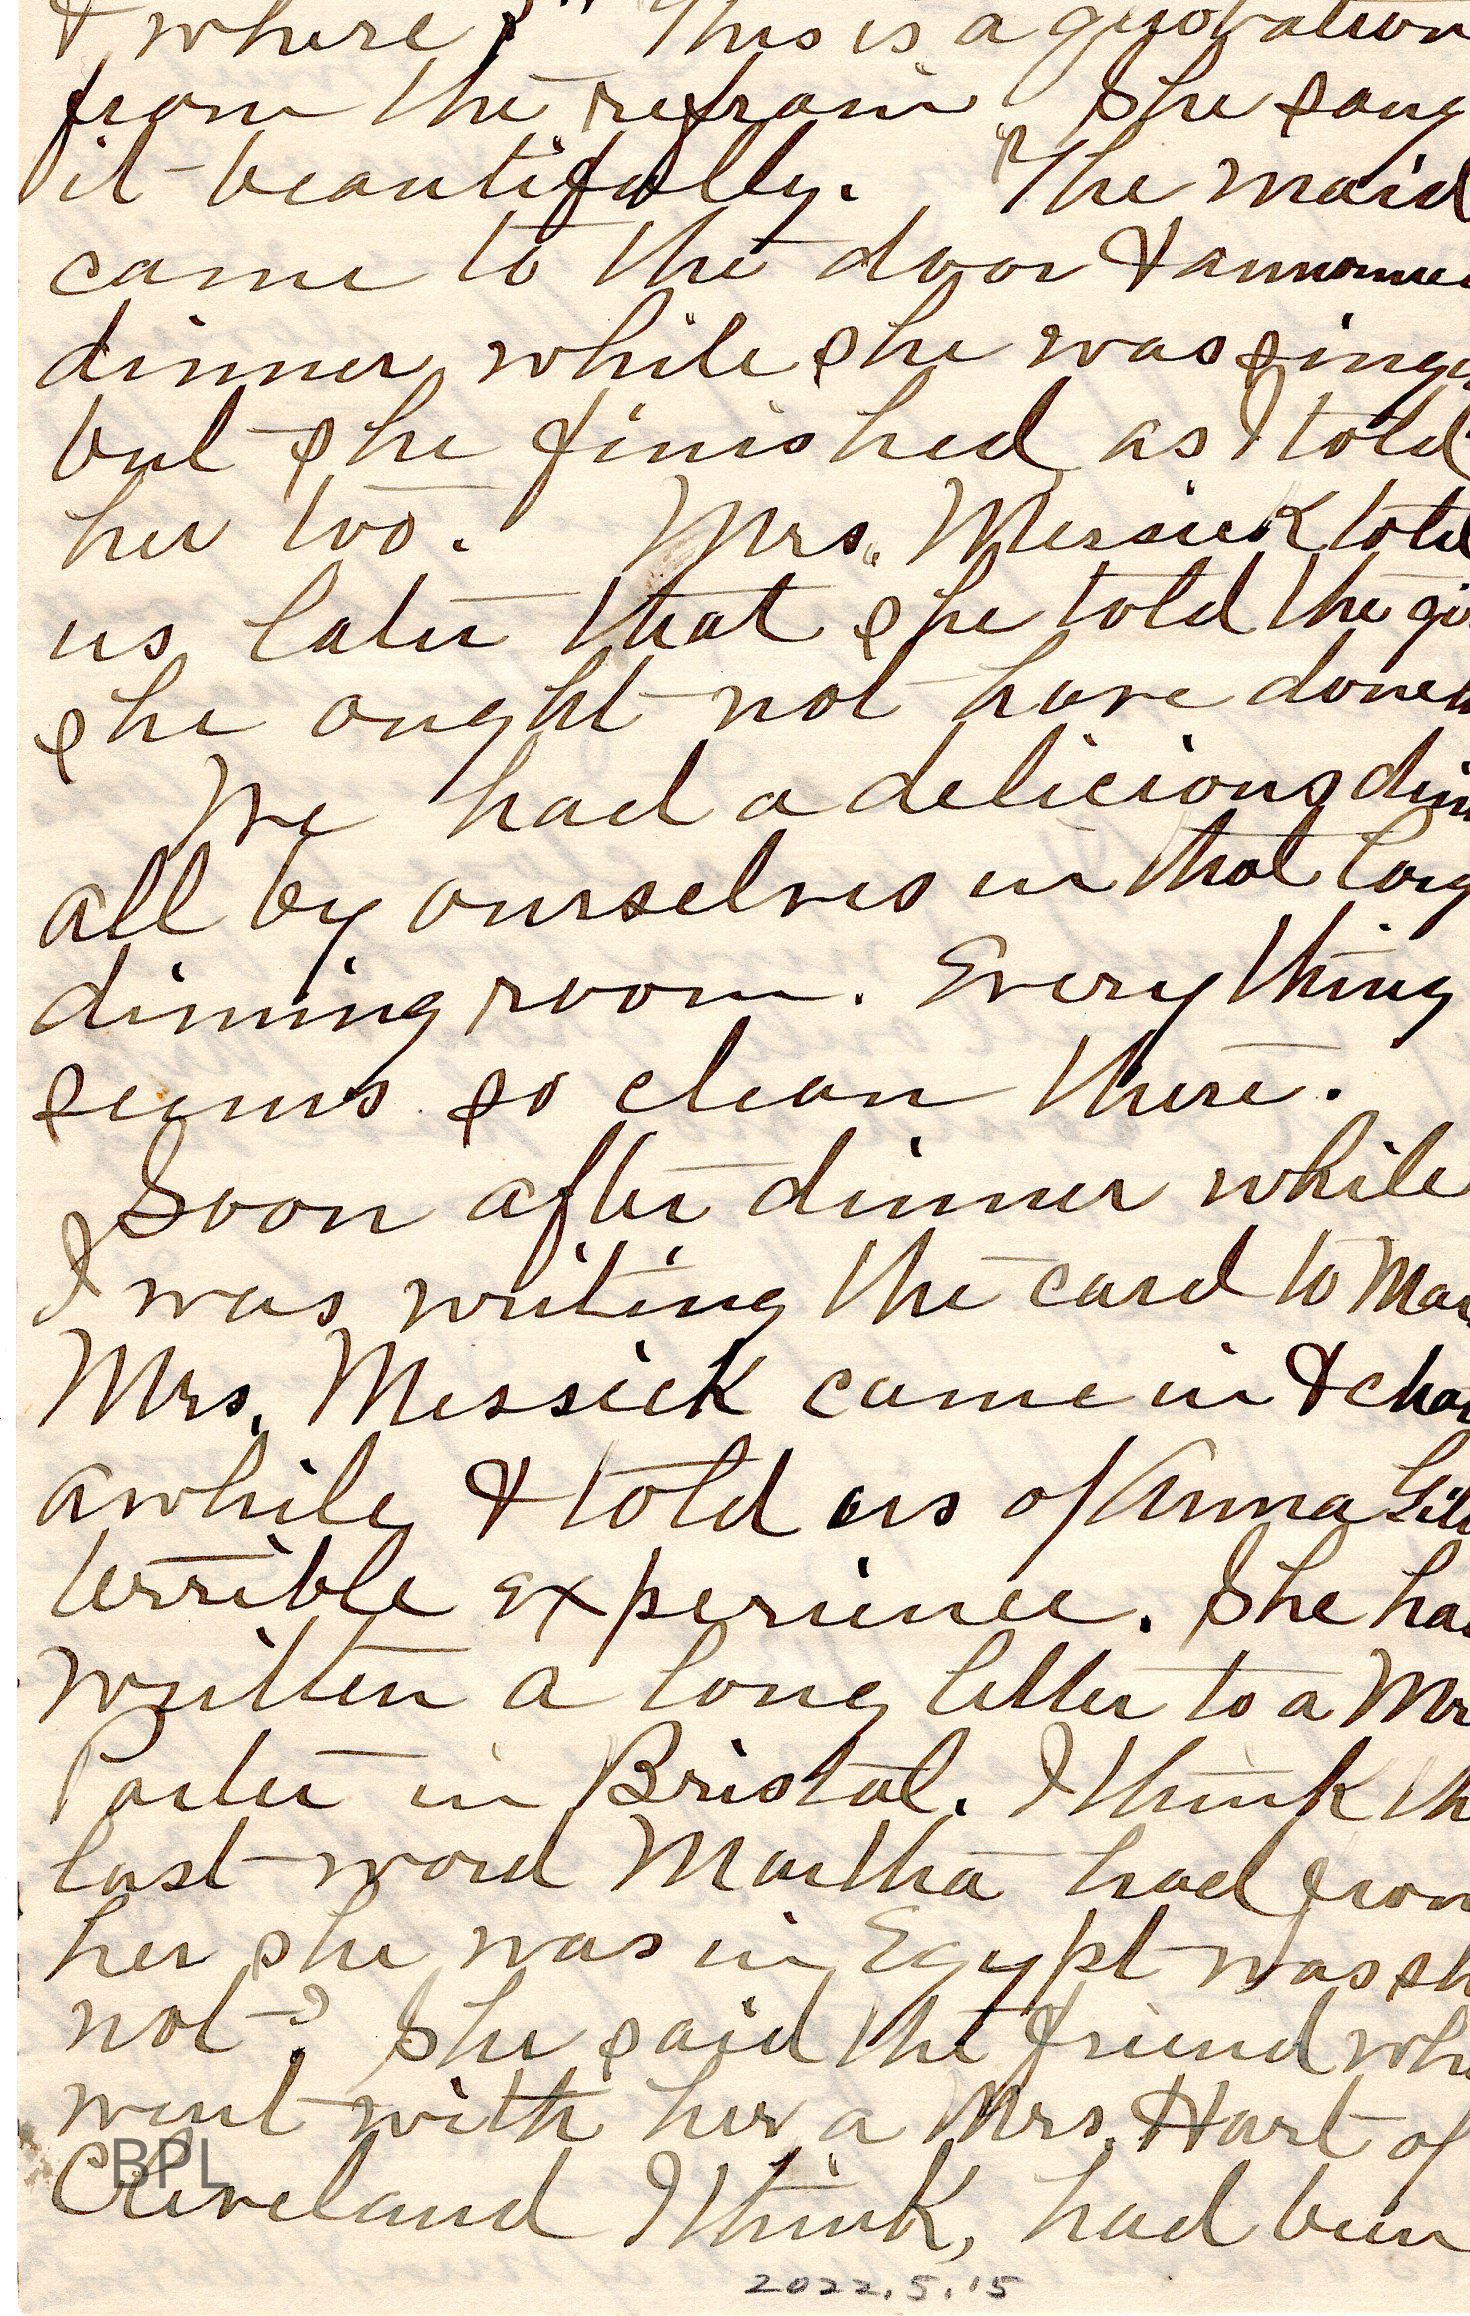 & where?" This is a quotation
from the refrain. She sang
it beautifully. The maid
came to the door & announce
dinner while she was singi
but she finished as I told
her too. Mrs. Messick told
us later that she told the gi
she ought not have done
We had a delicious din
all by ourselves in that long
dinning room. Everything
seems so clean there.
Soon after dinner while
I was writing the card to Mar
Mrs. Messick came in & cha
awhile & told us of Anna
terrible experience. She ha
written a long letter to a Mr
Porter in Bristol. I think th
last word Martha had from
her she was in Egypt was sh
not? She said the friend who
went with her a Mrs. Hart of
Cleveland I think, had been
BPL
2022.5.15